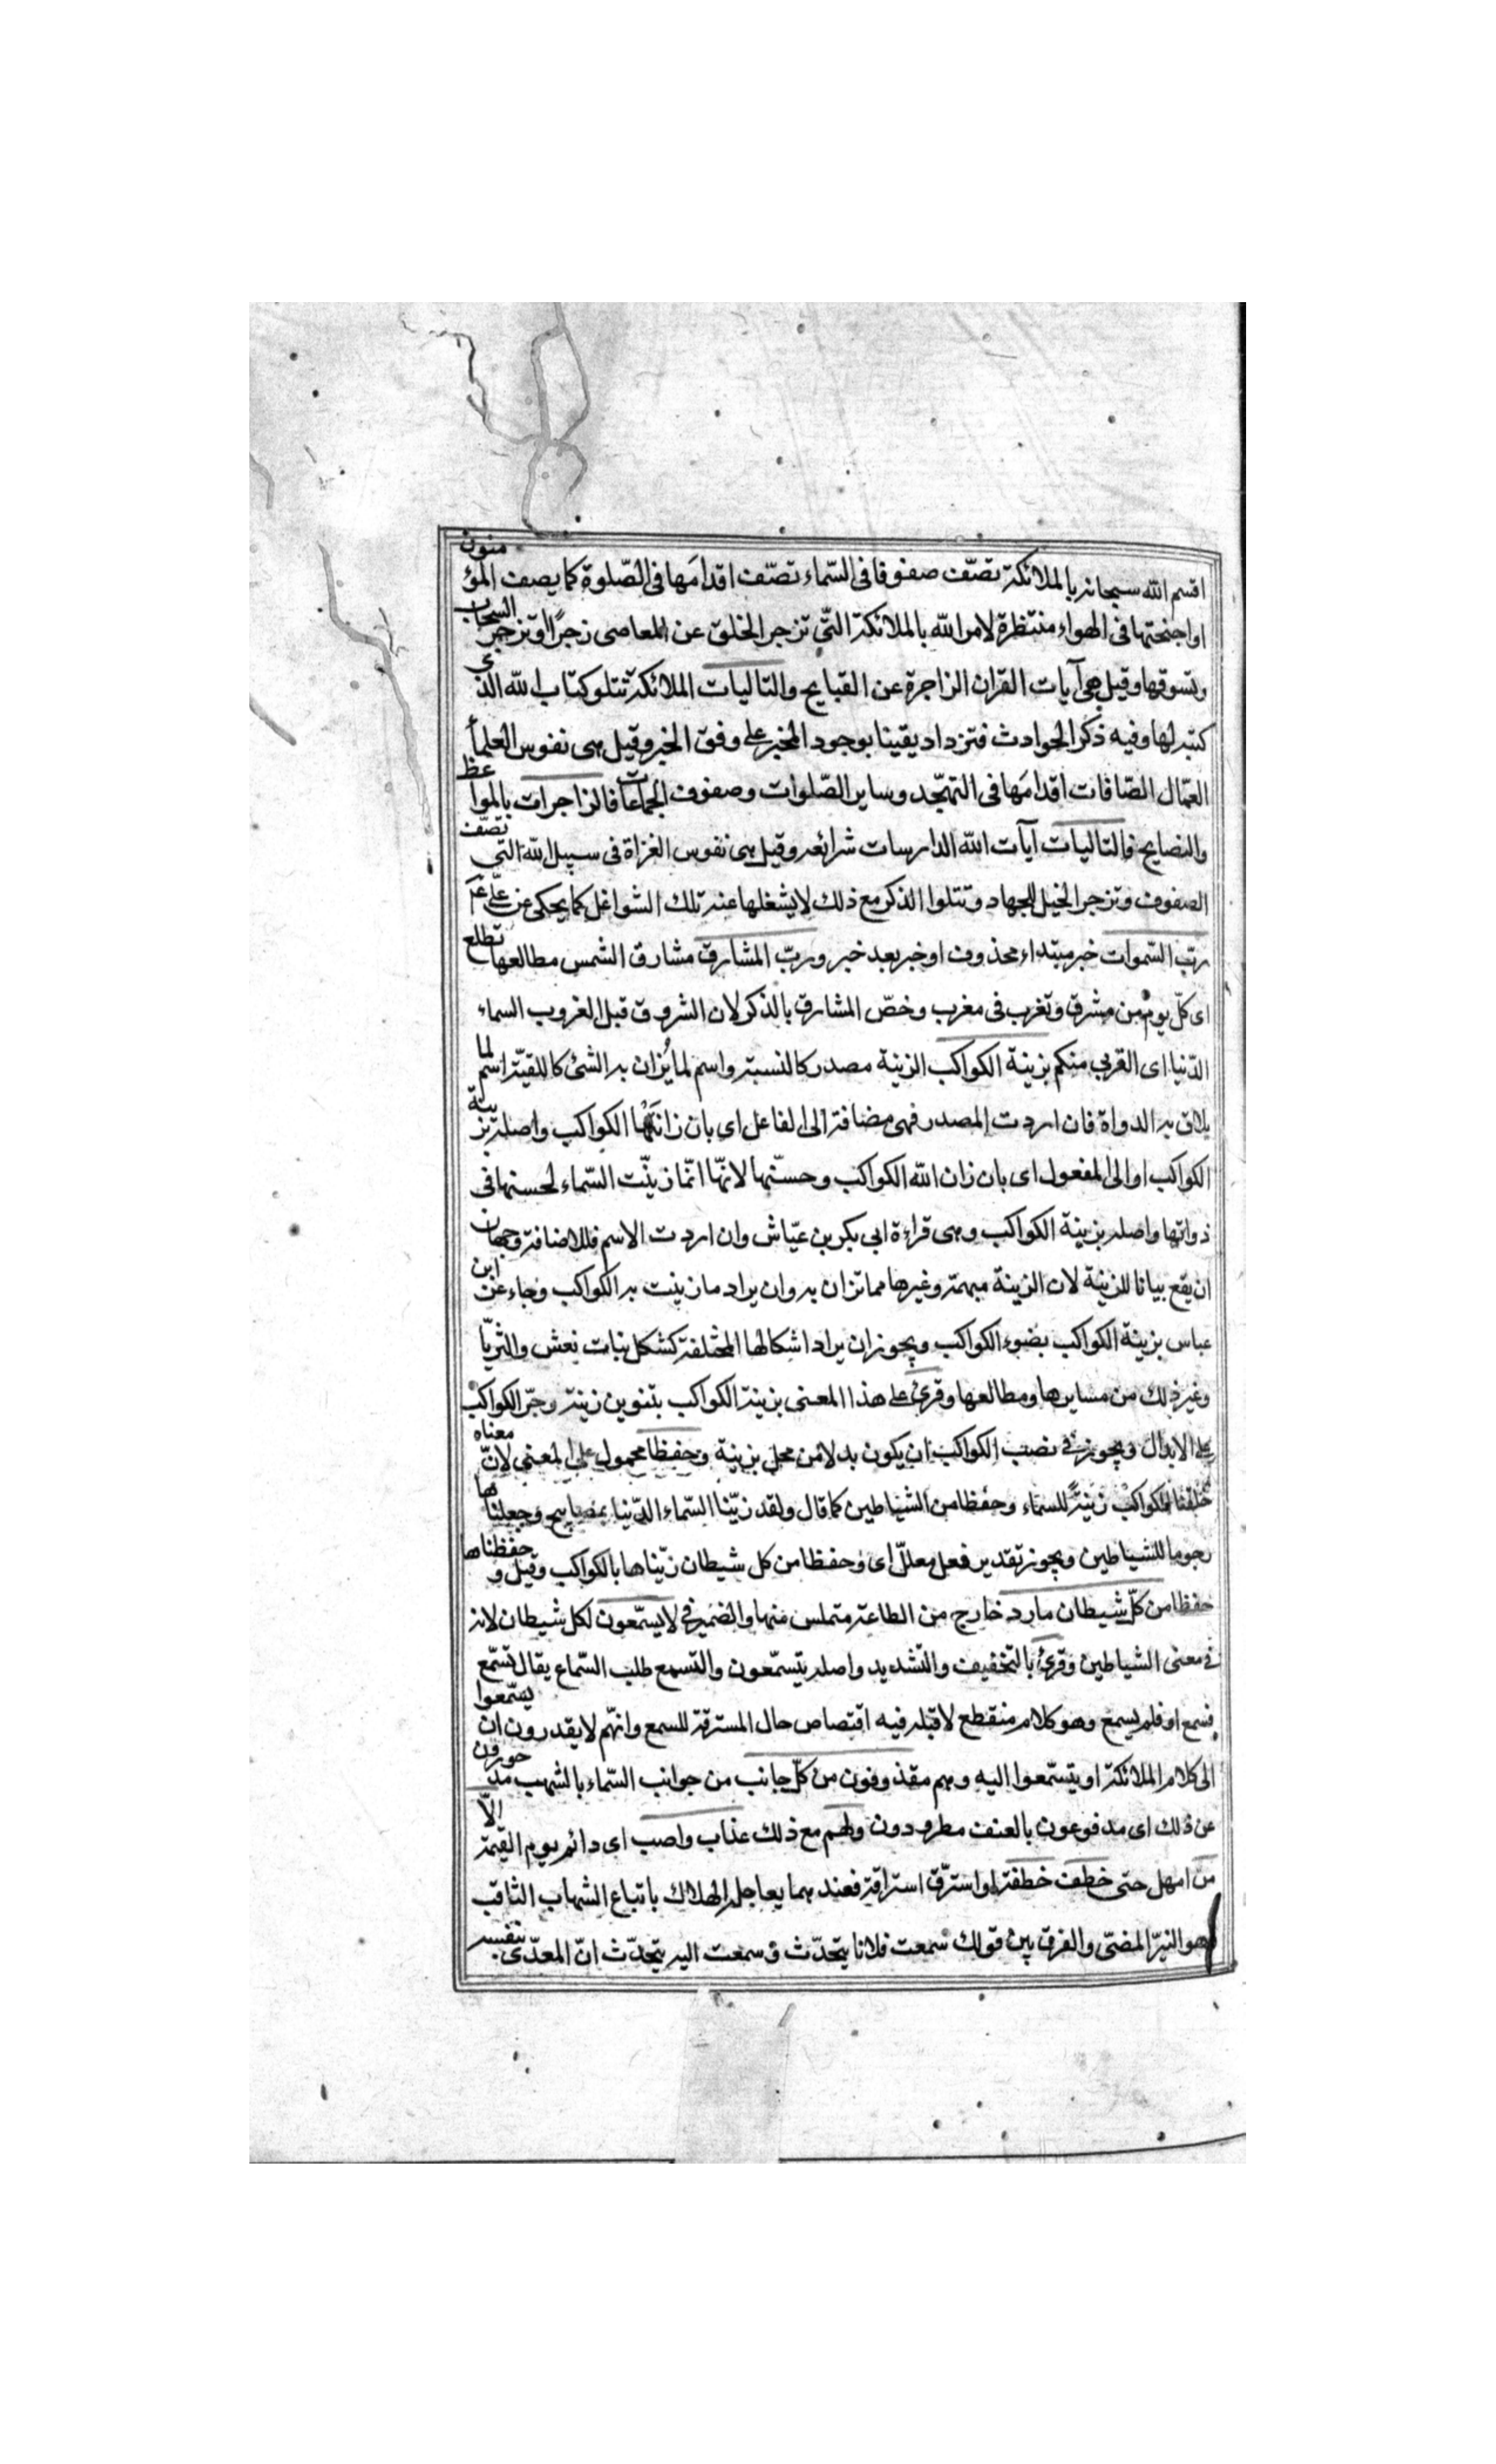 اقسم الله سبحانه بالملائكة تصّف صفوفا فى السّماء تصّف اقدامَها فى الصّلوة كما يصف المؤمنون
او اجنحتها فى الهواء منتظرة لامر الله بالملائكة التّى تزجر الخلق عن المعاصى زجرًا او تزجر السحاب
وتسوقها وقيل هى آيات القران الزاجرة عن القبايح والتاليات الملائكة تتلو كتاب الله الذى
كتبه لها وفيه ذكر الحوادث فتزداد يقينا بوجود المخبر على وفق الخبر وقيل هى نفوس العلمأ
العمّال الصّافات اقدامَها فى التهجّد وساير الصّلوات وصفوف الجماعات فالزاجرات بالمواعظ
والنصايح فالتاليات آيات الله الدارسات شرائعه وقيل هى نفوس الغزاة فى سبيل الله التى تصّف
الصفوف وتزجر الخيل للجهاد وتتلوا الذكر مع ذلك لا يشغلها عنه تلك الشواغل كما يحكى عن علّى عم
ربّ السّموات خبر مبتداء محذوف او خبر بعد خبر وربّ المشارق مشارق الشمس مطالعها تطلع
اى كلّ يوم من مشرق وتغرب فى مغرب وخصّ المشارق بالذكر لان الشروق قبل الغروب السماء
الدّنيا اى القربى منكم بزينة الكواكب الزينة مصدر كالنسبة واسم لما يُزان به الشئ كالليقة اسم لما
يلاق به الدواة فان اردت المصدر فهى مضافة الى الفاعل اى بان زانَتْها الكواكب واصله بزينة
الكواكب او الى المفعول اى بان زان الله الكواكب وحسّنها لانهّا انمّا زينّت السّماء لحسنها فى
ذواتها واصله بزينة الكواكب وهى قراءة ابى بكر بن عيّاش وان اردت الاسم فللاضافة وجهان
ان يقع بيانا للزينة لان الزينة مبهمة وغيرها مما تزان به وان يراد ما زينت به الكواكب وجاء عن ابن
عباس بزينة الكواكب بضوء الكواكب ويجوز ان يراد اشكالها المختلفة كشكل بنات نعش والثريّا
وغير ذلك من مسايرها ومطالعها وقرئ على هذا المعنى بزينة الكواكب بتنوين زينة وجرّ الكواكب
على الابدال ويجوز فى نصب الكواكب ان يكون بدلا من محل بزينة وحفظا محمول على المعنى لانّ معناه
خلقنا الكواكب زينةً للسماء وحفظا من الشياطين كما قال ولقد زيّنا السّماء الدّنيا بمصابيح وجعلناها
رجوما للشياطين ويجوز تقدير فعل معلّل اى وحفظا من كل شيطان زيّناها بالكواكب وقيل و حفظناها
حفظا من كلّ شيطان مارد خارج من الطاعة متملس منها والضمير فى لا يسّمعون لكل شيطان لانه
فى معنى الشياطين وقرئ بالتخفيف والتشديد واصله يتسمّعون والتسمع طلب السّماع يقال تسمّع
فسمع او فلم يسمع وهو كلام منقطع لا قبله فيه اقتصاص حال المسترقة للسمع وانهّم لا يقدرون ان يسّمعوا
الى كلام الملائكة او يتسّمعوا اليه وهم مقذوفون من كلّ جانب من جوانب السّماء بالشهب مدحورون
عن ذلك اى مدفوعون بالعنف مطرودون ولهم مع ذلك عذاب واصب اى دائم يوم القيٰمة الاّ
من امهل حتى خطف خطفة او استرّق استراقة فعندهما يعاجله الهلاك باتباع الشهاب الثاقب
هو النيّر المضئ والفرق بين قولك سمعت فلانا يتحدّث و سمعت اليه يتحدّث انّ المعدّى بنفسه